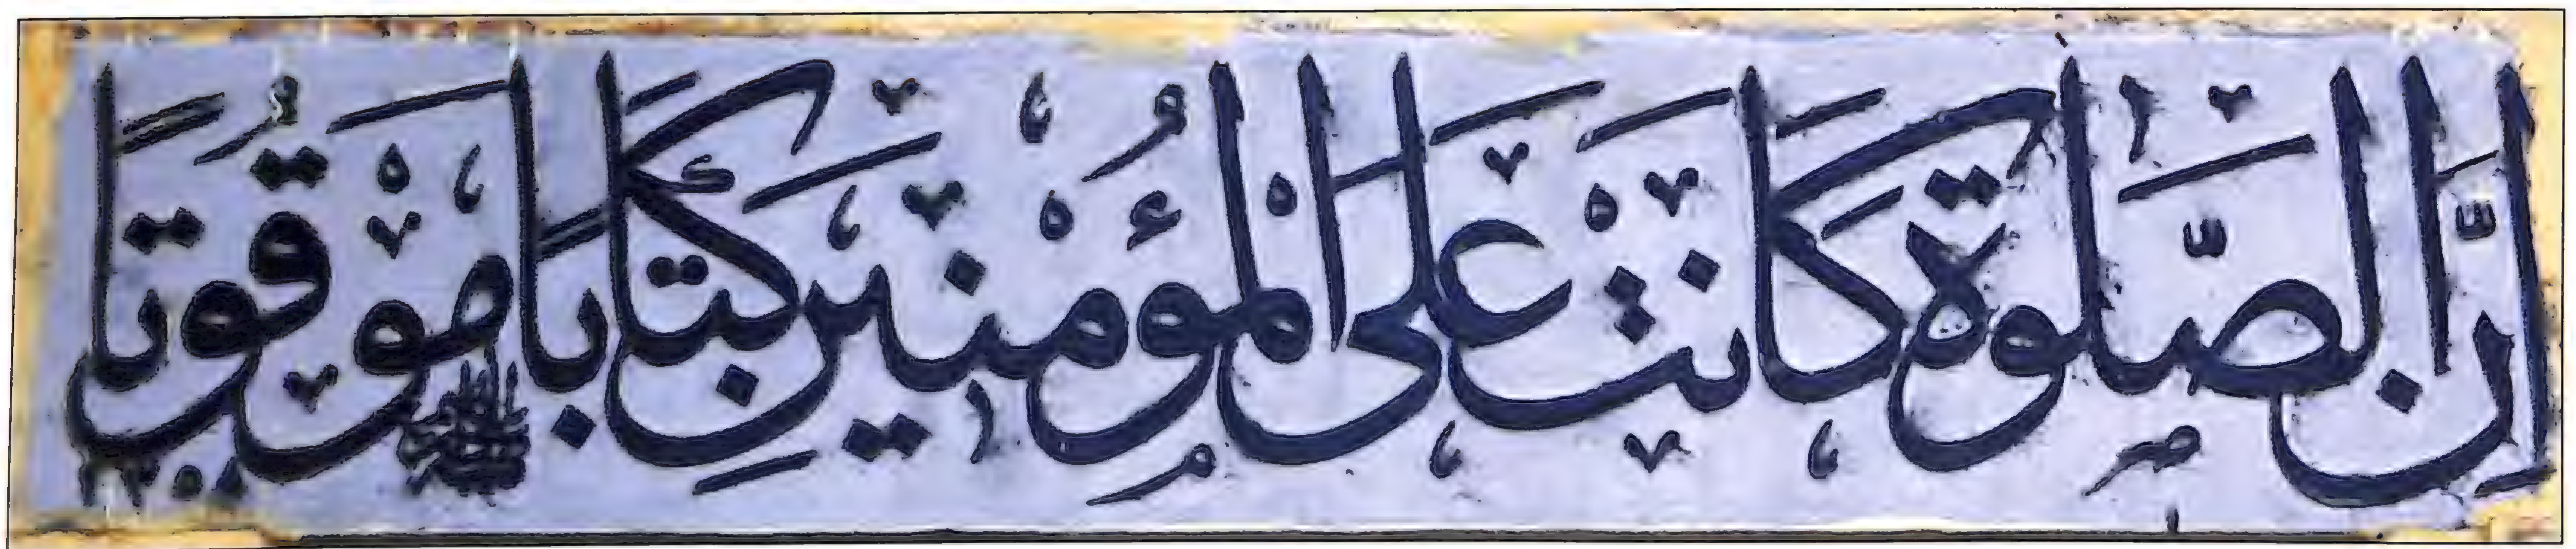 اِنَّ الصَّلٰوةَ كَانَتْ عَلَى الْمُؤْمِنٖينَ كِتَابًا مَوْقُوتًا
١٢٥٨